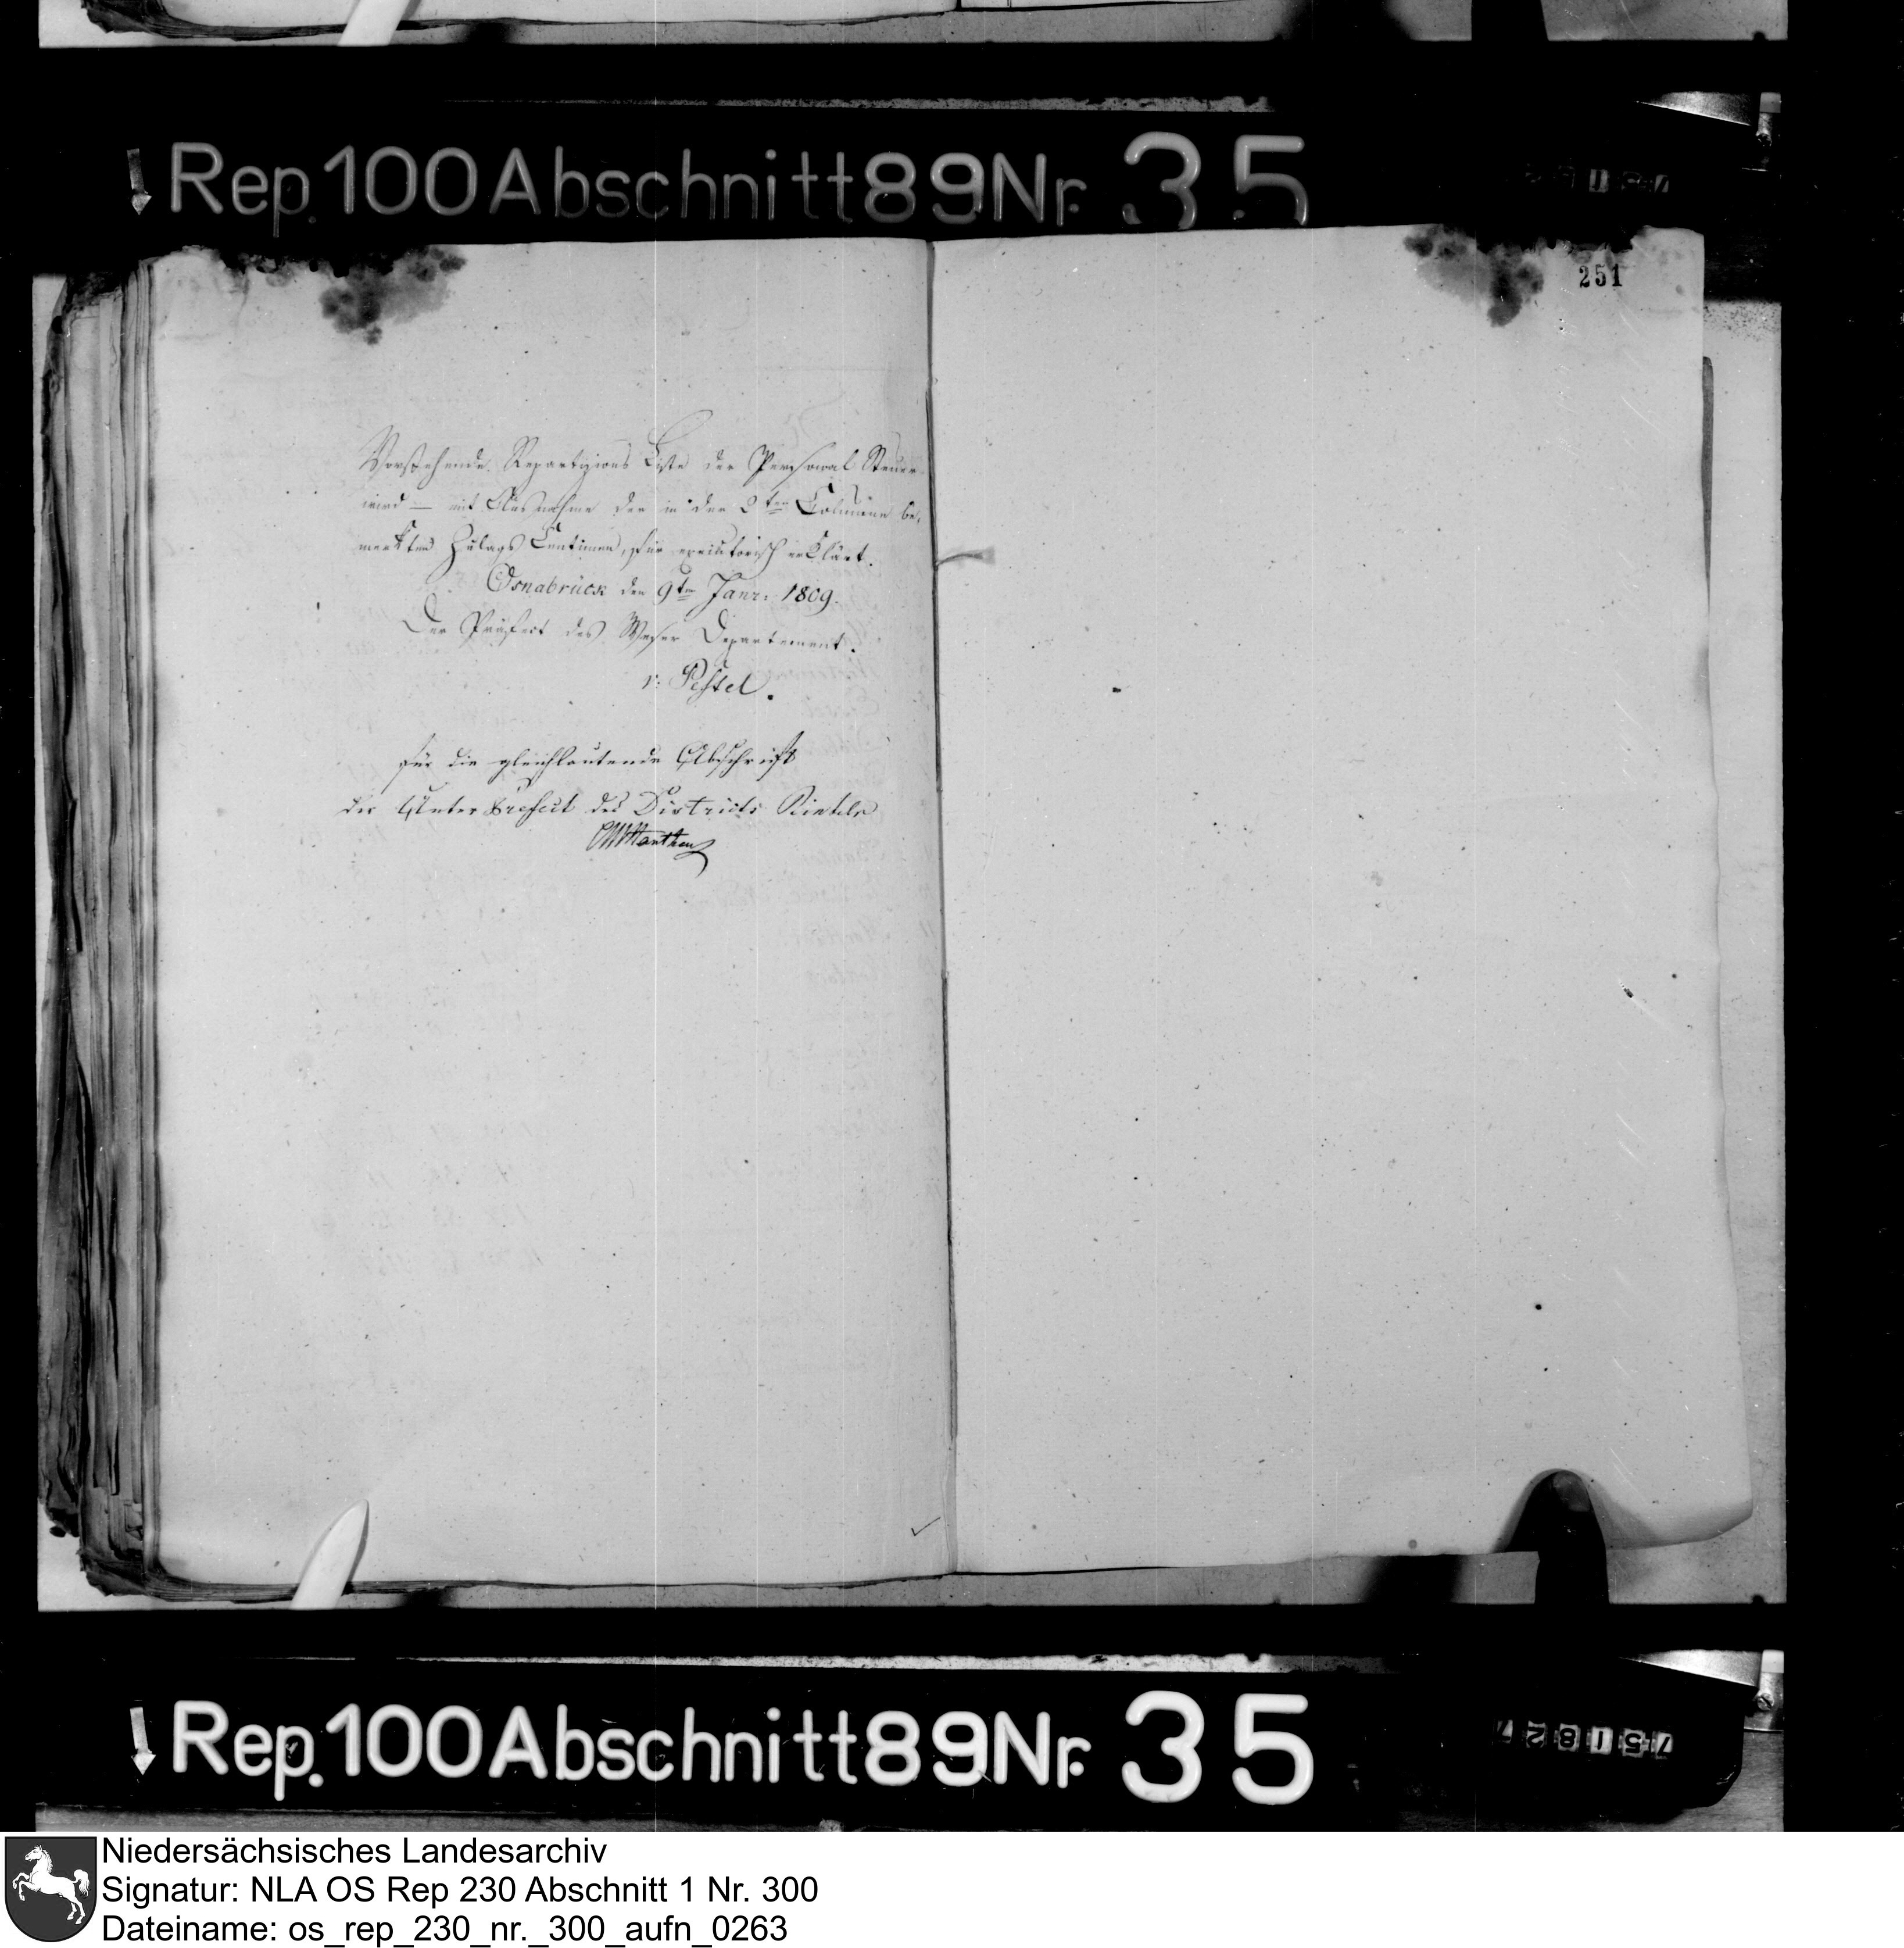 Rep. 100 Abschnitt 89 Nr. 35
251
Vorstehende Repartizions Liste der Personal Steuer
wird — mit Ausnahme der in der 2ten Columne be,
merkten Zulags Centimen, für executorisch erklärt.
Osnabrück den 9ten Janr: 1809.
Der Präfect des Weser Departement.
v: Pestel.
für die gleichlautende Abschrift
der Unter Präfect des Districts Rinteln
Rep. 100 Abschnitt 89 Nr. 35
751827
Niedersächsisches Landesarchiv
Signatur: NLA OS Rep 230 Abschnitt 1 Nr. 300
Dateiname: os_rep_230_nr._300_aufn_0263